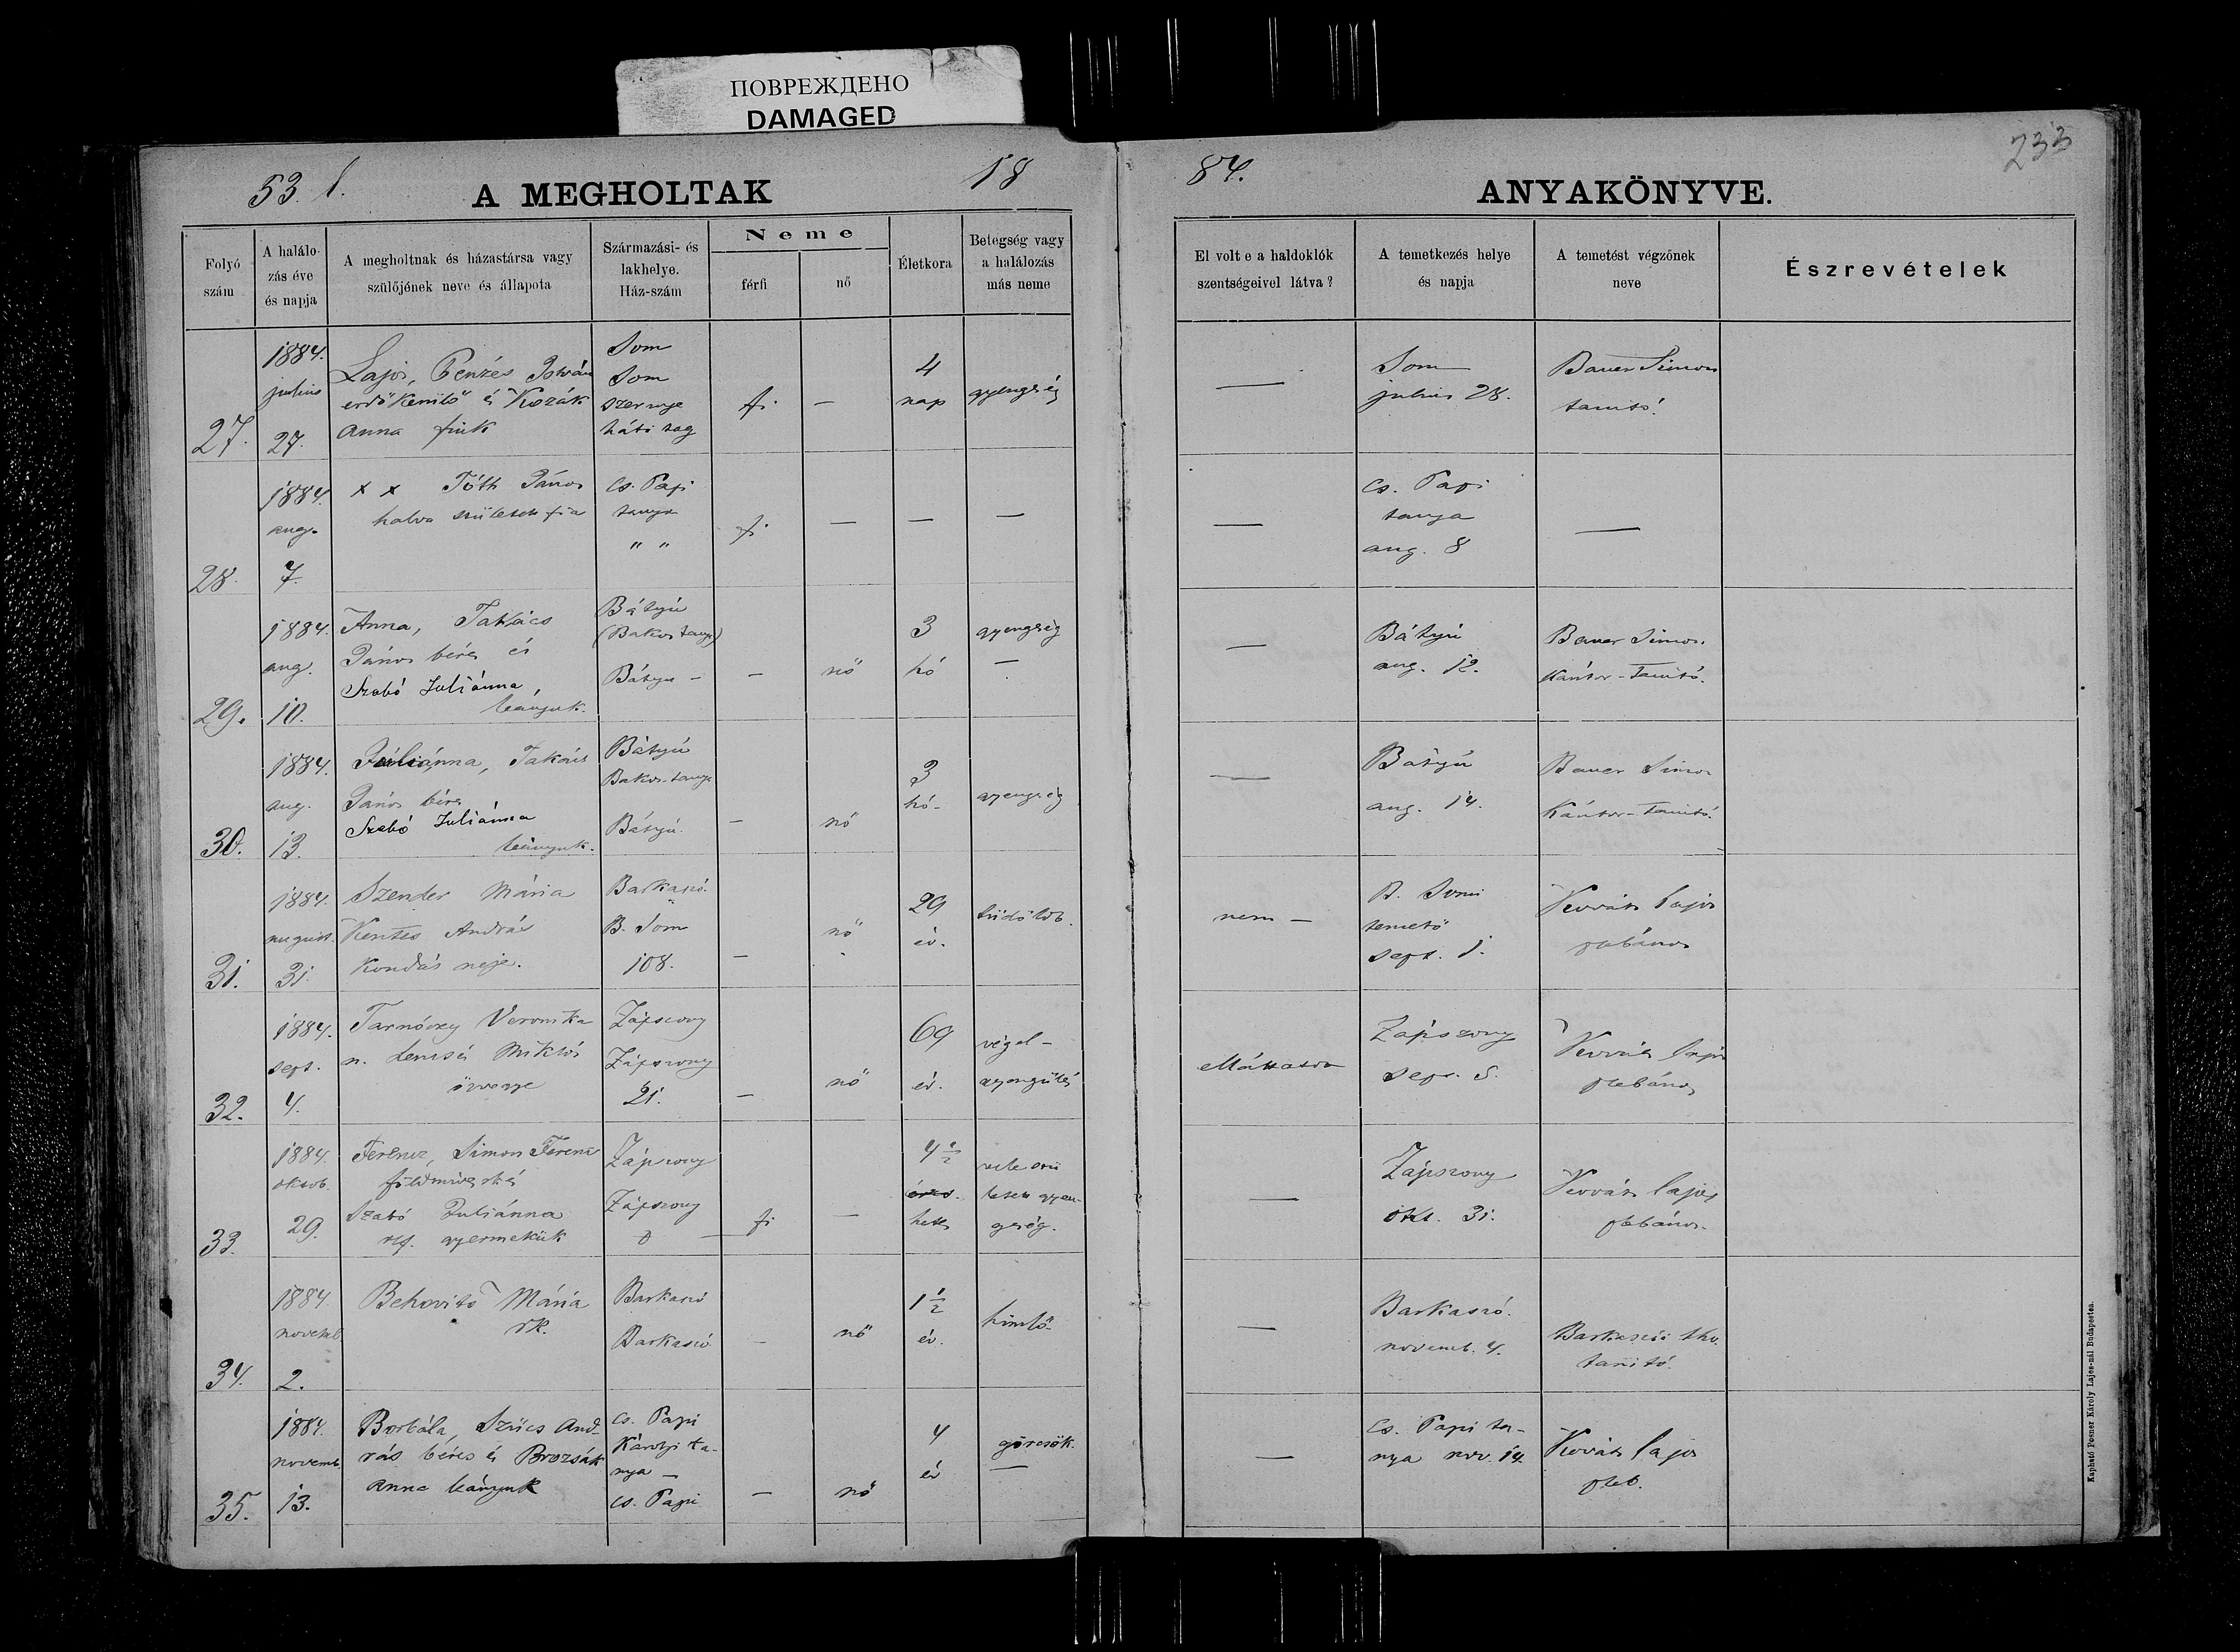 ПОВРЕЖДЕНО
DAMAGED
53. l.
A MEGHOLTAK
18
84.
ANYAKÖNYVE.
233
Folyó
szám
A halálo-
zás éve
és napja
A megholtnak és házastársa vagy
szülőjének neve és állapota
Származási- és
lakhelye.
Ház-szám
Neme
férfi
nő
Életkora
Betegség vagy
a halálozás
más neme
El volt e a haldoklók
szentségeivel látva?
A temetkezés helye
és napja
A temetést végzőnek
neve
Észrevételek
27.
1884.
julius
27.
Lajos, Pénzés István
erdőkerülő és Kozák
Anna fiuk
Som
Som
szernye
háti
fi
—
4
nap
gyengeség
—
Som
julius 28.
Bauer Simon
tanitó.
28.
1884.
aug.
7.
x x Tóth János
halva született fia
cs. Papi
tanya
" "
fi
—
—
—
—
cs. Papi
tanya
aug. 8
—
29.
1884.
aug.
10.
Anna, Takács
János béres és
Szabó Juliánna,
leanyuk.
Bátyú
(Bakos tanya)
Bátyu -
—
nő
3
hó
gyengeség
—
—
Bátyú
aug. 12.
Bauer Simon.
Kántor-Tanitó.
30.
1884.
aug.
13.
Juliánna, Takács
János béres
Szabó Juliánna
leányuk.
Bátyú
Bakos-tanya
Bátyú.
—
nő
3
hó-
gyengeség
—
Bátyú
aug. 14.
Bauer Simon
Kántor-Tanitó.
31.
1884.
august.
31.
Szender Mária
Kentés András
Kondás neje.
Barkaszó.
B. Som
108.
—
nő
29
év.
tüdőlob.
nem —
B. Somi
temető
sept. 1.
Kovács Lajos
plebános
32.
1884.
sept.
4.
Tarnóczy Veronika
n. Lencsés Miklós
özvegye
Zápszony
Zápszony
21.
—
nő
69
év.
végel-
gyengülés
ellátatva
Zápszony
sept. 5.
Kovács Lajos
plebános
33.
1884.
oktob.
29.
Ferencz, Simon Ferencz
földműves rk és
Szabó Juliánna
ref. gyermekük
Zápszony
Zápszony
fi
—
4 1/2
hetes
vele szü
letett gyen-
geség.
—
Zápszony
okt. 31.
Kovács Lajos
plebános.
34.
1884.
novemb.
2.
Behovits Mária
rk.
Barkaszó
Barkaszó
—
nő
1 1/2
év.
himlő
—
Barkaszó.
novemb. 4.
Barkaszói
tanitó.
35.
1884.
novemb.
13.
Borbála, Szücs And-
rás béres és Brozsák
Anna leányuk
cs. Papi
Károlyi ta-
nya —
cs. Papi
—
nő
4
év
görcsök.
—
—
cs. Papi ta-
nya nov. 14.
Kovács Lajos
pleb.
Kapható Posner Károly Lajos-nál Budapesten.